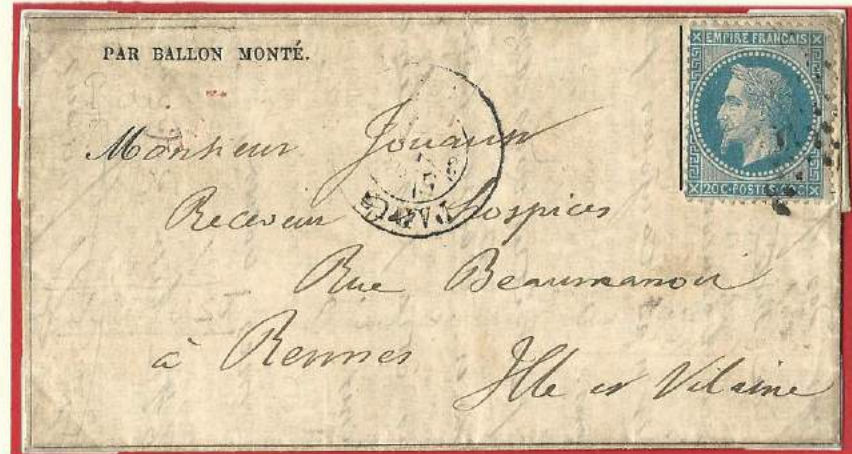 PAR BALLON MONTÉ.
EMPIRE FRANÇAIS
20 C·POSTES·20 C
Monsieur Jouaust
Receveur hospices
Rue Beaumanoir
à Rennes
Ille et Vilaine
PARIS